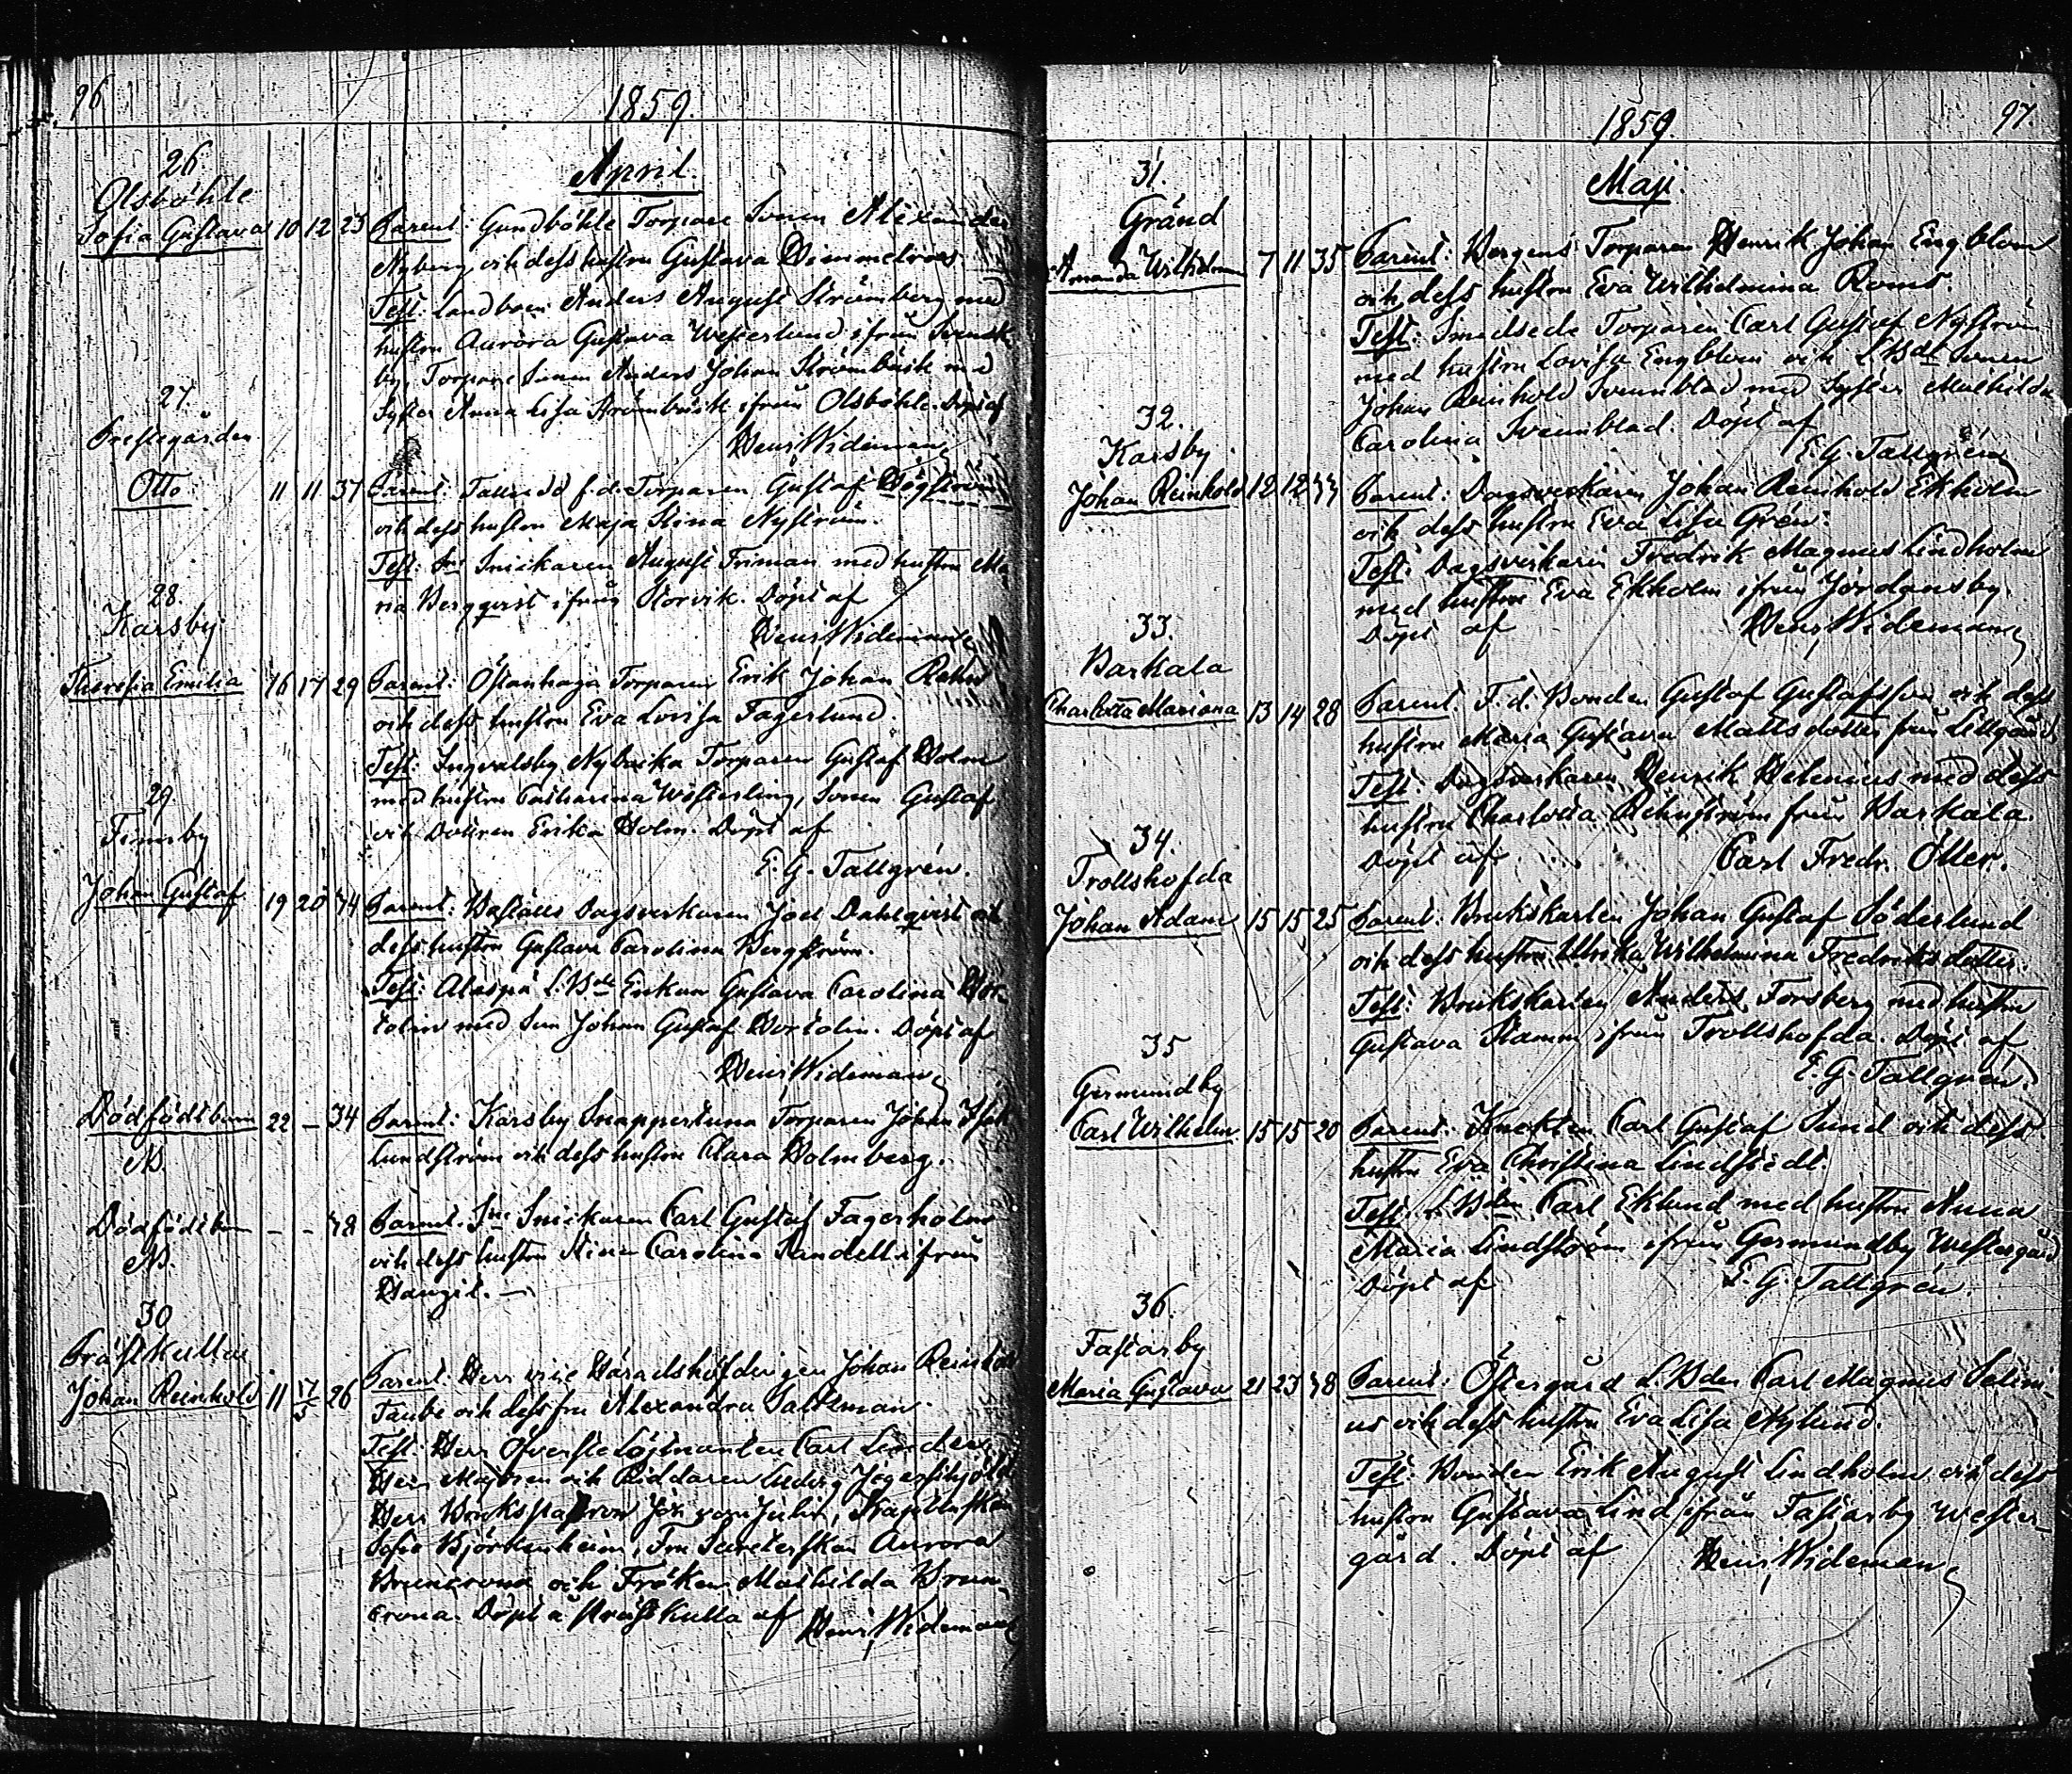 96
1859.
April.
26
Olsböhle
Sofia Gustava 10 12 25 Parent: Gundböhle Torpare Sonen Alexander
Nyberg och dess hustru Gustava Himmelroos.
Test: Landboen Anders August Strömberg med
hustru Aurora Gustava Westerlund ifrån Svensk
by, Torpare Sonen Anders Johan Strömbäck med
Syster Anna Lisa Strömbäck ifrån Olsböhle. Döpt af
Henr. Wideman
27
Prestegården
Otto 11 11 37 Parent: f.d. Torparen Gustaf Högström
och dess hustru Maja Stina Nyström.
Test: Snickaren August Friman med hustru Ma
ria Bergqvist ifrån Storvik. Döpt af
Henr. Wideman
28.
Karsby
Theresia Emilia 16 17 29 Parent: Östanhaga Torparen Erik Johan Rehn
och dess hustru Eva Lovisa Fagerlund.
Test: Ingvalsby Nybacka Torparen Gustaf Holm
med hustru Catharina Westerling, Sonen Gustaf
och Dottren Erika Holm. Döpt af
E. G. Tallgrén.
29
Finnby
Johan Gustaf 19 20 44 Parent: Dagsverkaren Joel Dahlqvist och
dess hustru Gustava Carolina Bergström.
Test: Alaspä L.Bde Enkan Gustava Carolina Hor-
tolin med Son Johan Gustaf Hortolin. Döpt af
Henr. Wideman
Dödfödt barn 22 – 34 Parent: Karsby Snappertuna Torparen Johan Isak
Lundström och dess hustru Clara Holmberg.
NB.
Dödfödt barn – – 48 Parent: Snickaren Carl Gustaf Fagerholm
och dess hustru Stina Carolina Sandell ifrån
NB.
Bangit. –
30
Präst Kulla
Johan Reinhold 11 17/5 26 Parent: Herr vice Häradshöfdingen Johan Reinhold
Taube och dess fru Alexandra Saltzman.
Test: Herr Öfverste Löjtnanten Carl Linder,
Herr Majoren och Riddaren Ludvig Jägerskjöld
Herr Brukspatron von Julin,
Sofia Björkenheim, Fru Aurora
Bruncrona och Fröken Mathilda Brun-
crona. Döpt å Präst Kulla af Henr. Wideman
97.
1859
Maji.
31.
Gränd
Amanda Wilhelmina 7 11 35 Parent: Bergens Torparen Henrik Johan Engblom
och dess hustru Eva Wilhelmina Roms.
Test: Smedsede Torparen Carl Gustaf Nyström
med hustru Lovisa Engblom och L.Bde Sonen
Johan Reinhold Svennblad med Syster Mathilda
Carolina Svennblad. Döpt af
E. G. Tallgrén
32.
Karsby
Johan Reinhold 12 12 44 Parent: Dagsverkaren Johan Reinhold Ekholm
och dess hustru Eva Lisa Grén.
Test: Dagsverkaren Fredrik Magnus Lindholm
med hustru Eva Ekholm ifrån Jordansby.
Döpt af Henr. Wideman
33.
Barkala
Charlotta Mariana 13 14 28 Parent: F.d. Bonden Gustaf Gustafsson och dess
hustru Maria Gustava Mattsdotter från Lillgård
Test: Dagsverkaren Henrik Helenius med dess
hustru Charlotta Rehnström från Barkala.
Döpt af Carl Fredr. Öller.
34.
Trollshofda
Johan Adam 15 15 25 Parent: Brukskarlen Johan Gustaf Söderlund
och dess hustru Ulrika Wilhelmina Fredriksdotter.
Test: Brukskarlen Anders Forsberg med hustru
Gustava Stamm ifrån Trollshofda. Döpt af
E. G. Tallgrén.
35
Germundby
Carl Wilhelm 15 15 20 Parent: Knekten Carl Gustaf Sund och dess
hustru Eva Christina Lindstedt.
Test: L.Bden Carl Eklund med hustru Anna
Maria Lindström ifrån Germundby Westergård
Döpt af E. G. Tallgrén.
36.
Fastarby
Maria Gustava 21 23 48 Parent: Östergård L.Bden Carl Magnus Selin-
us och dess hustru Eva Lisa Nylund.
Test: Bonden Erik August Lindholm och dess
hustru Gustava Lind ifrån Fastarby Wester-
gård. Döpt af Henr. Wideman